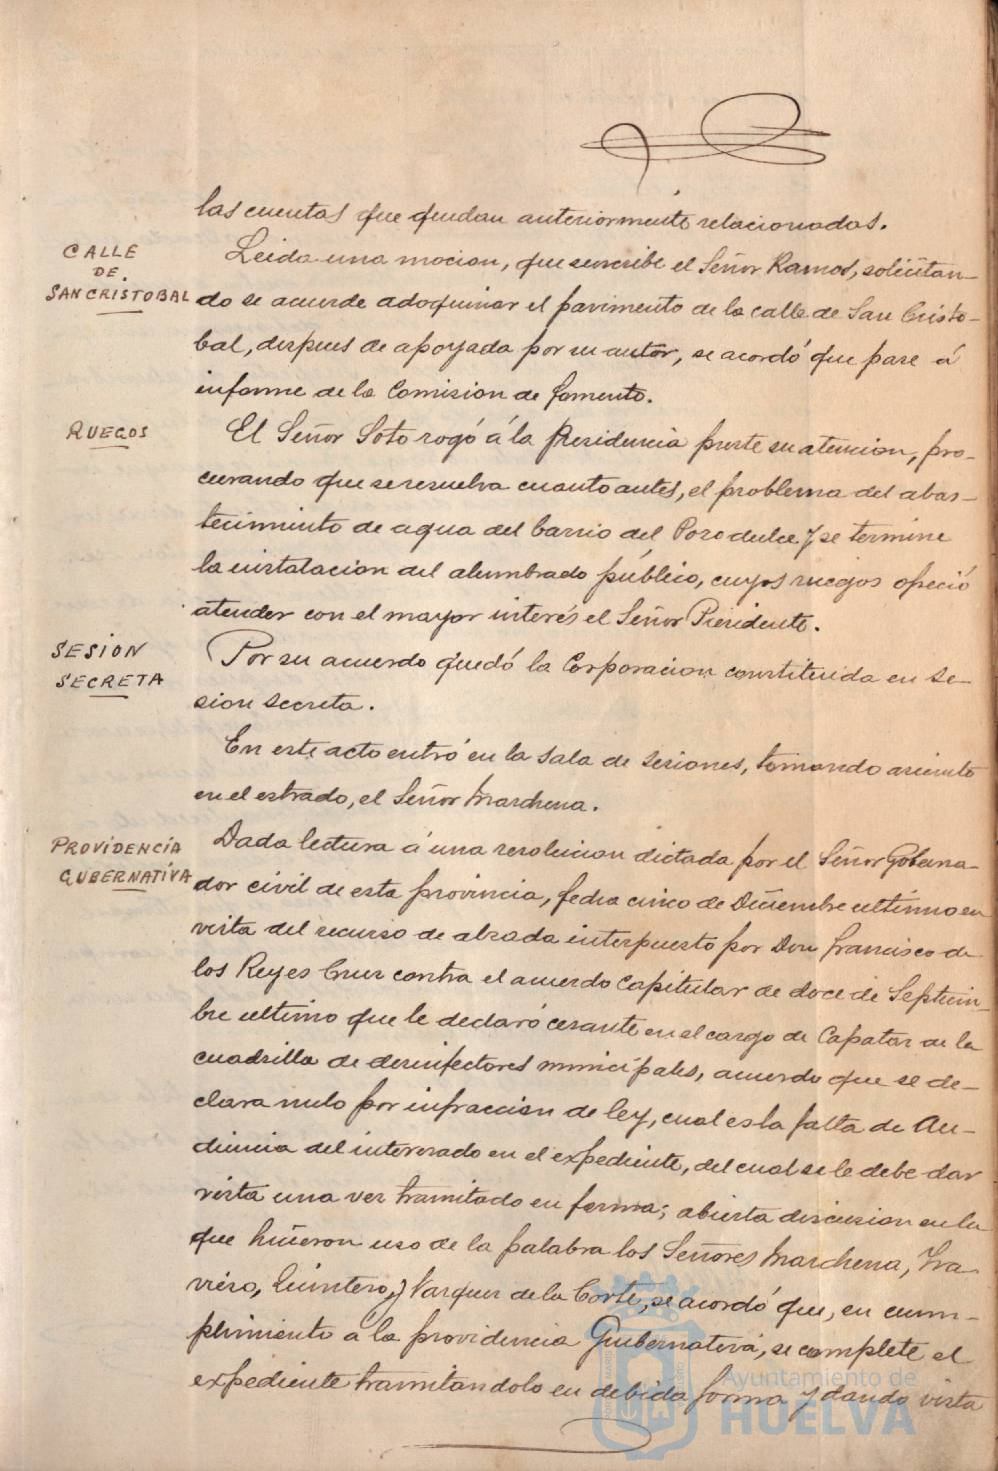 las cuentas que quedan anteriormente relacionadas.
CALLE
DE
SAN CRISTOBAL
Leida una mocion, que suscribe el Señor Ramos, solicitan-
do se acuerde adoquinar el pavimento de la calle de San Cristo-
bal, despues de apoyada por su autor, se acordó que pase á
informe de la Comision de fomento.
RUEGOS
El Señor Soto rogó á la Presidencia preste su atencion, pro-
curando que se resuelva cuanto antes, el problema del abas-
tecimiento de agua del barrio del Pozo dulce y se termine
la instalacion del alumbrado público, cuyos ruegos ofreció
atender con el mayor interés el Señor Presidente.
SESION
SECRETA
Por su acuerdo quedó la Corporacion constituida en se-
sion secreta.
En este acto entró en la sala de sesiones, tomando asiento
en el estrado, el Señor Marchena.
PROVIDENCIA
GUBERNATIVA
Dada lectura á una resolucion dictada por el Señor Goberna-
dor civil de esta provincia, fecha cinco de Diciembre ultimo en
vista del recurso de alzada interpuesto por Don Francisco de
los Reyes Cruz contra el acuerdo Capitular de doce de Septiem-
bre ultimo que le declaró cesante en el cargo de Capataz de la
cuadrilla de desinfectores municipales, acuerdo que se de-
clara nulo por infraccion de ley, cual es la falta de Au-
diencia del interesado en el expediente, del cual se le debe dar
vista una vez tramitado en forma; abierta discusion en la
que hicieron uso de la palabra los Señores Marchena, Tra-
vieso, Quintero, y Vazquez de la Corte, se acordó que, en cum-
plimiento a la providencia Gubernativa, se complete el
expediente tramitandolo en debida forma y dando vista
Ayuntamiento de
HUELVA